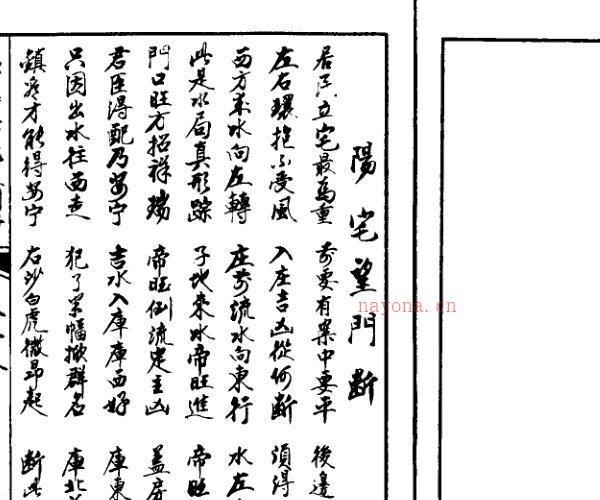 陽宅望門断
居民立宅最為重 前要有案中要平 後邊
左右環抱不受風 入座吉凶從何断 須得
西方來水向左轉 庄前流水向東行 水左
此是水局真形踪 子地來水帝旺進 帝旺
門口旺方招祥瑞 帝旺倒流定主凶 蓋房
君臣得配乃安宁 吉水入庫庫西好 庫東
只因出水往西走 犯了 群名 庫北
鎮 才能得安宁 右沙白虎微昂起 断此
nayona.cn